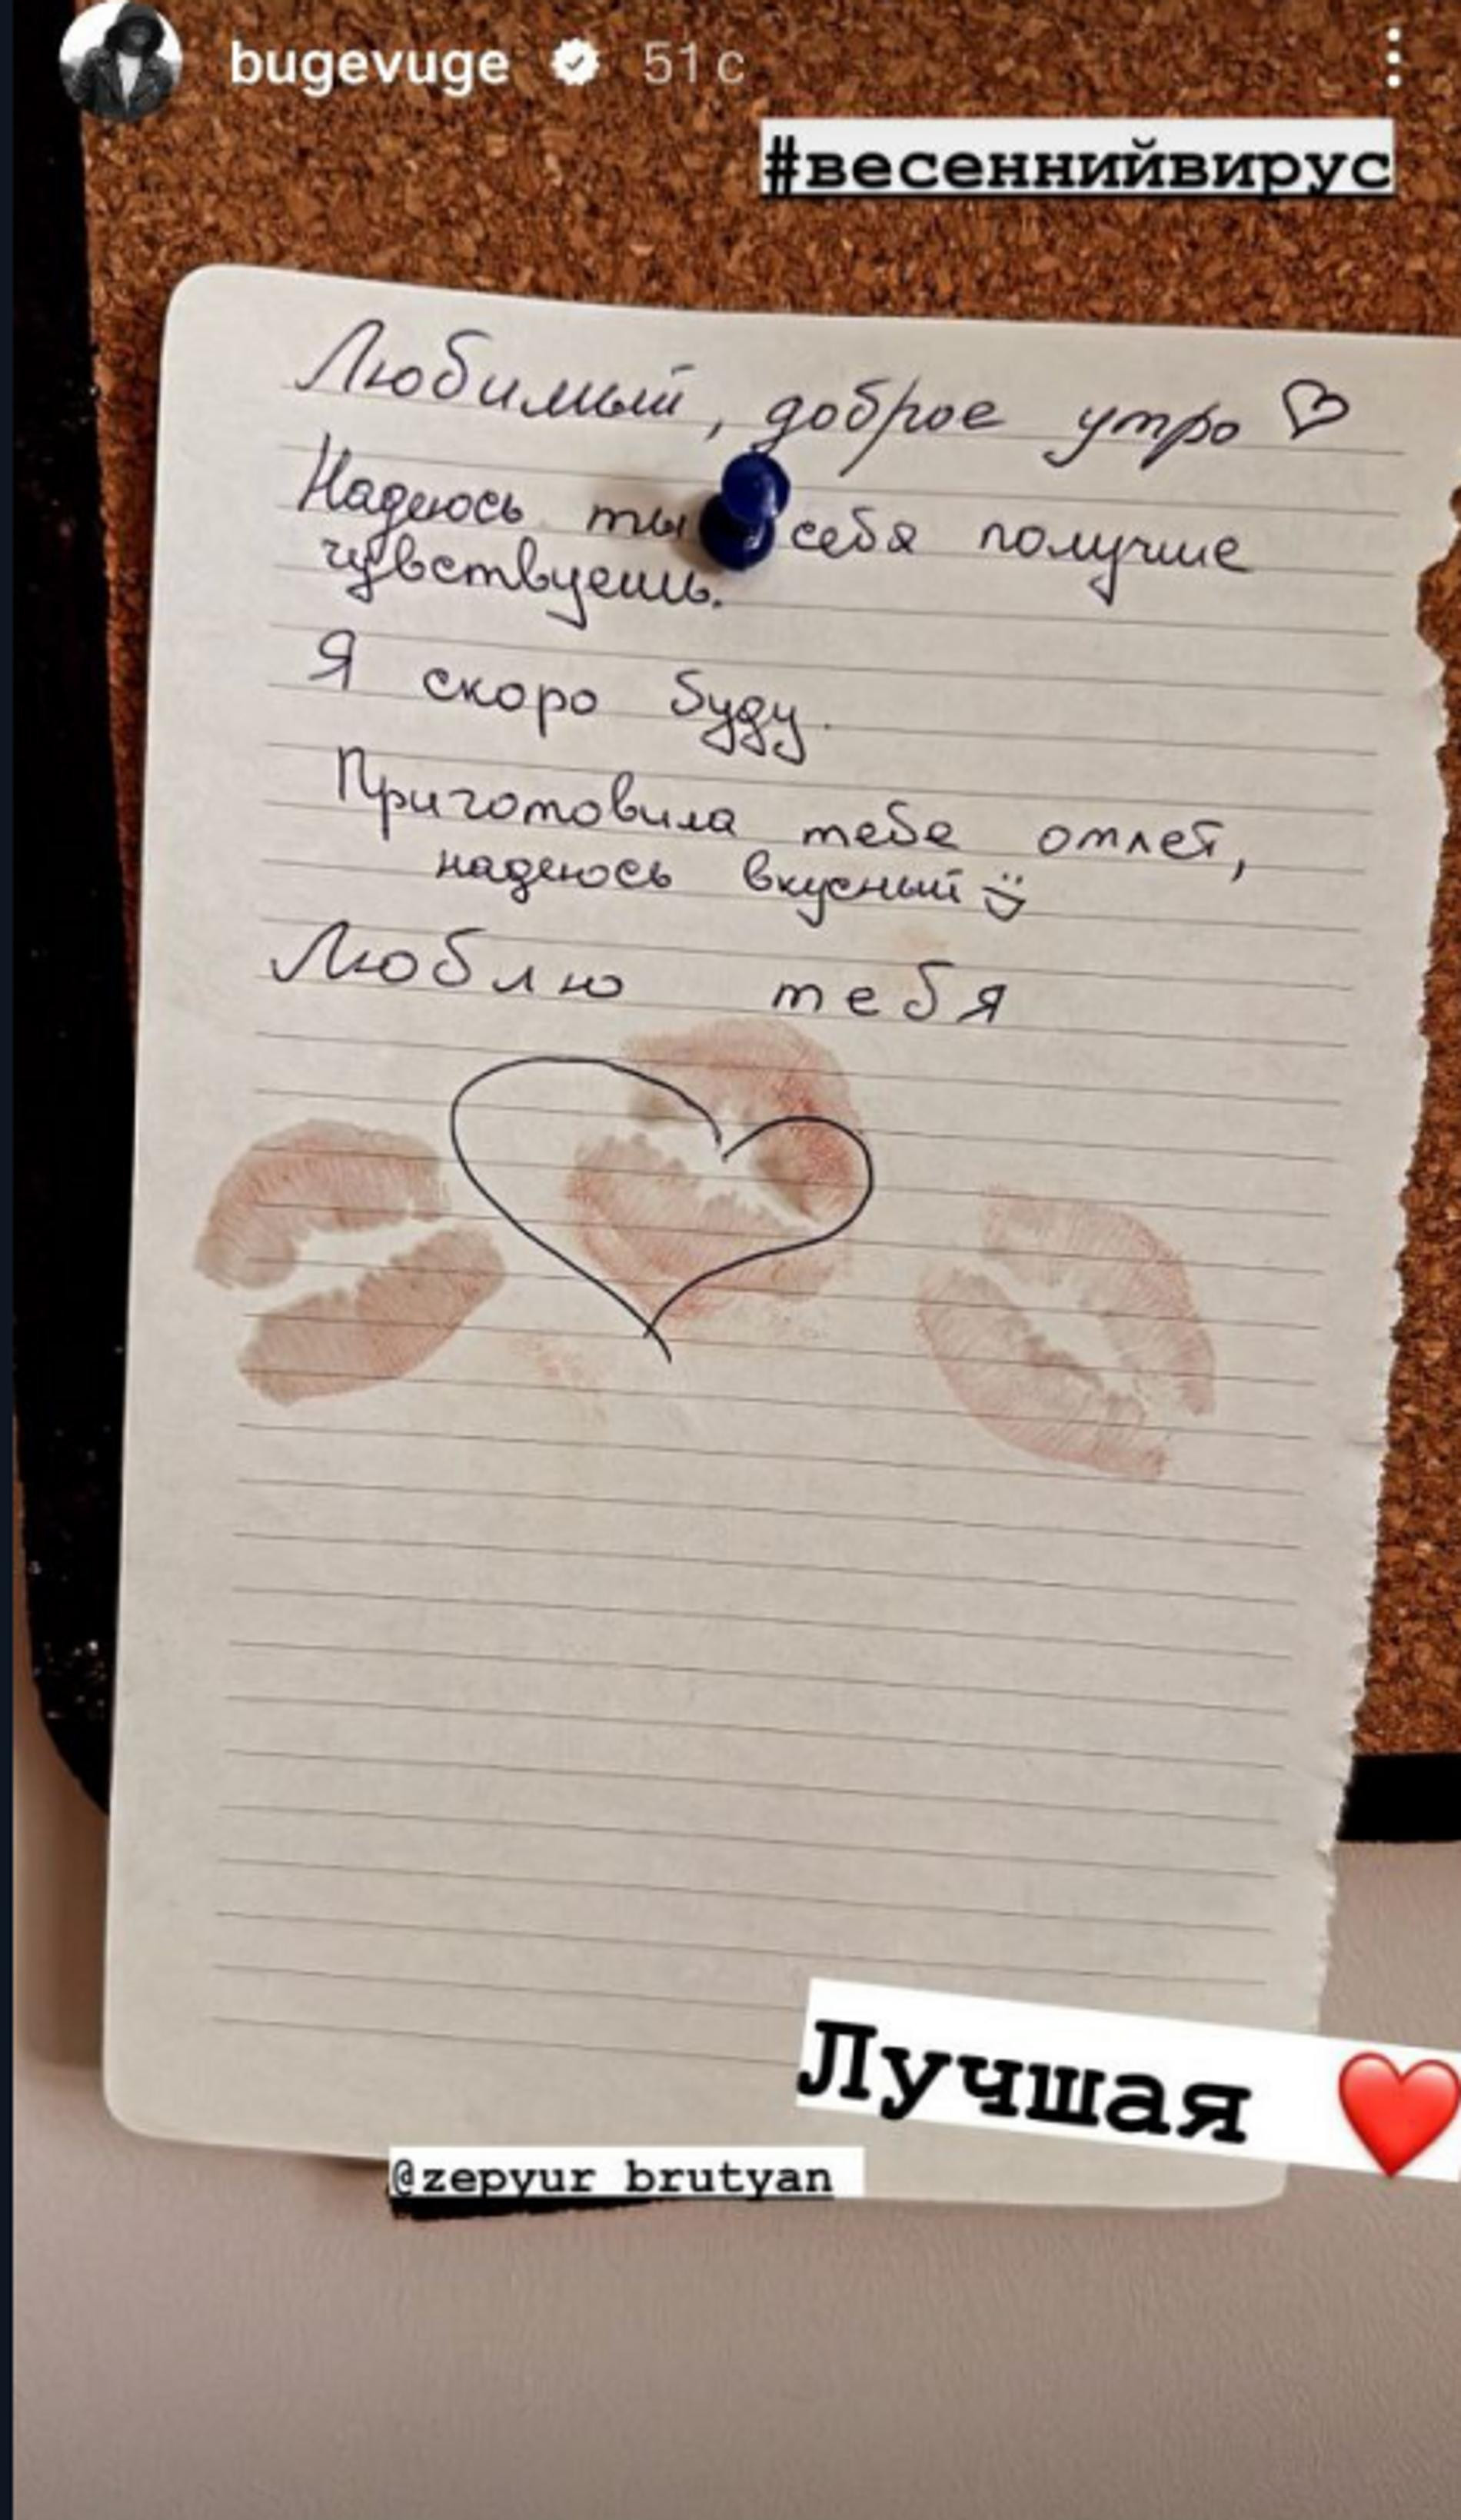 bugevuge 51 с
#весеннийвирус
Любимый, доброе утро ♡
Надеюсь ты себя получше
чувствуешь.
Я скоро буду.
Приготовила тебе омлет,
надеюсь вкусный
Люблю тебя
Лучшая ❤️
@zepyur_brutyan